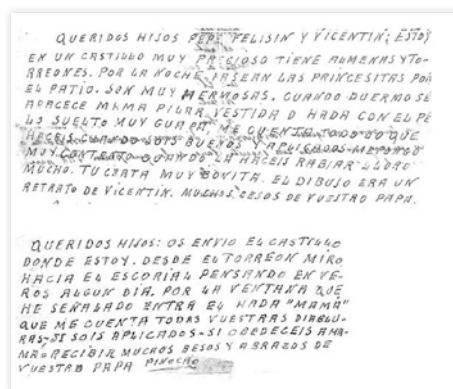 QUERIDOS HIJOS PEPE FELISIN Y VICENTIN; ESTOY
EN UN CASTILLO MUY PRECIOSO TIENE ALMENAS Y TO-
RREONES. POR LA NOCHE PASEAN LAS PRINCESITAS POR
EL PATIO. SON MUY HERMOSAS. CUANDO DUERMO SE
APARECE MAMA PILAR VESTIDA D HADA CON EL PE
LO SUELTO MUY GUAPA. ME CUENTA TODO LO QUE
HACEIS CUANDO SOIS BUENOS Y APLICADOS ME PONGO
MUY CONTENTO CUANDO LA HACEIS RABIAR LLORO
MUCHO. TU CARTA MUY BONITA. EL DIBUJO ERA UN
RETRATO DE VICENTIN. MUCHOS BESOS DE VUESTRO PAPA.
QUERIDOS HIJOS: OS ENVIO EL CASTILLO
DONDE ESTOY. DESDE EL TORREON MIRO
HACIA EL ESCORIAL PENSANDO EN VE-
ROS ALGUN DIA. POR LA VENTANA QUE
HE SEÑALADO ENTRA EL HADA "MAMÁ"
QUE ME CUENTA TODAS VUESTRAS DIABLU-
RAS, SI SOIS APLICADOS - SI OBEDECEIS A MA-
MA. RECIBIR MUCHOS BESOS Y ABRAZOS DE
VUESTRO PAPA PINOCHO